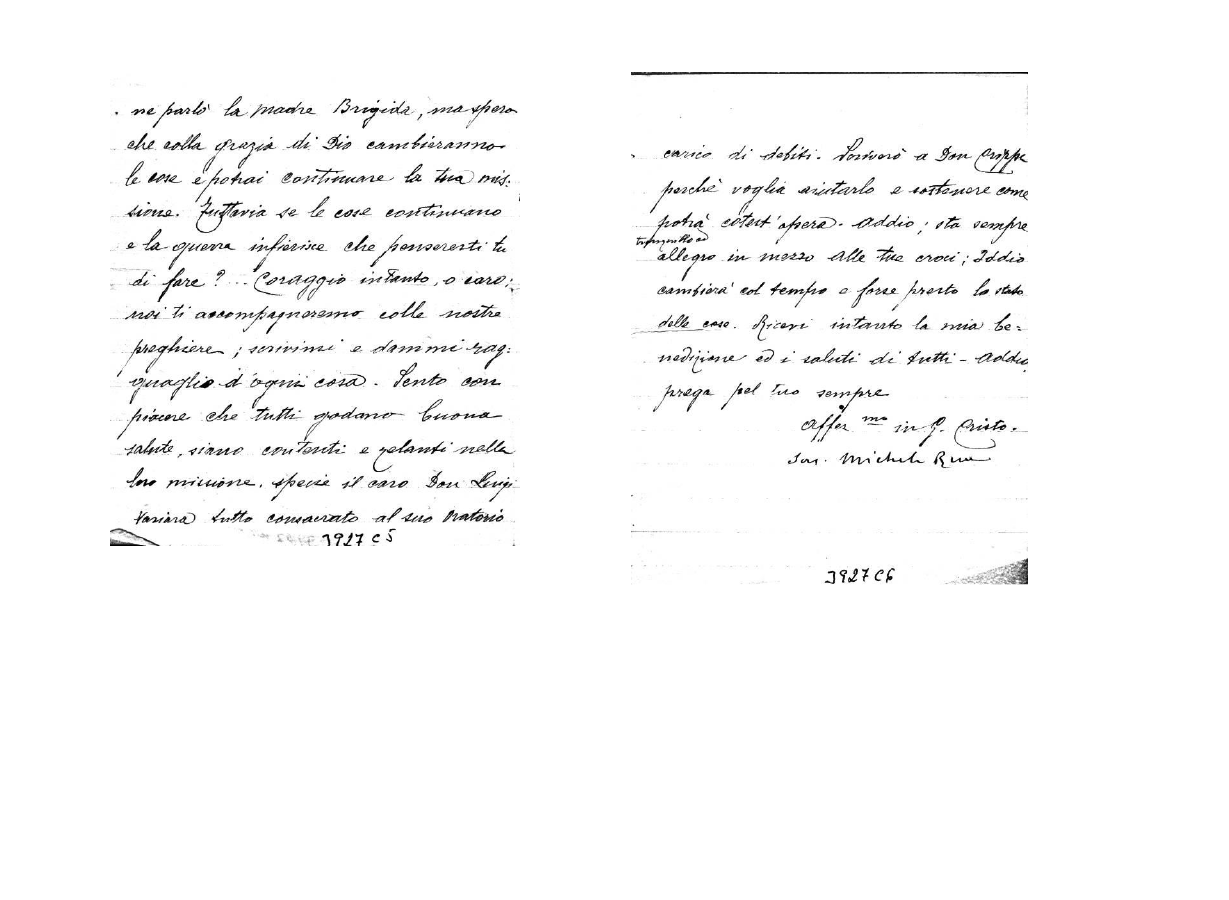 ne parlò la madre Brigida, ma spero
che colla grazia di Dio cambieranno
le cose e potrai continuare la tua mis:
sione. Tuttavia se le cose continuano
e la guerra infierisce che penseresti tu
di fare? .. Coraggio intanto, o caro;
noi ti accompagneremo colle nostre
preghiere; scrivimi e dammi rag:
guaglio d'ogni cosa. Sento con
piacere che tutti godano buona
salute, siano contenti e zelanti nella
loro missione, specie il caro Don Luigi
Variara tutto consacrato al suo Oratorio
J927 C5
carico di debiti. Scriverò a Don Crippa
perchè voglia aiutarlo e sostenere come
potrà cotest'opera. Addio; sta sempre
tranquillo ed
allegro in mezzo alle tue croci; Iddio
cambierà col tempo e forse presto lo stato
delle cose. Ricevi intanto la mia be=
nedizione ed i saluti di tutti - Addio,
prega pel tuo sempre
Affez mo in G. Cristo.
Sac. Michele Rua
J927 C6